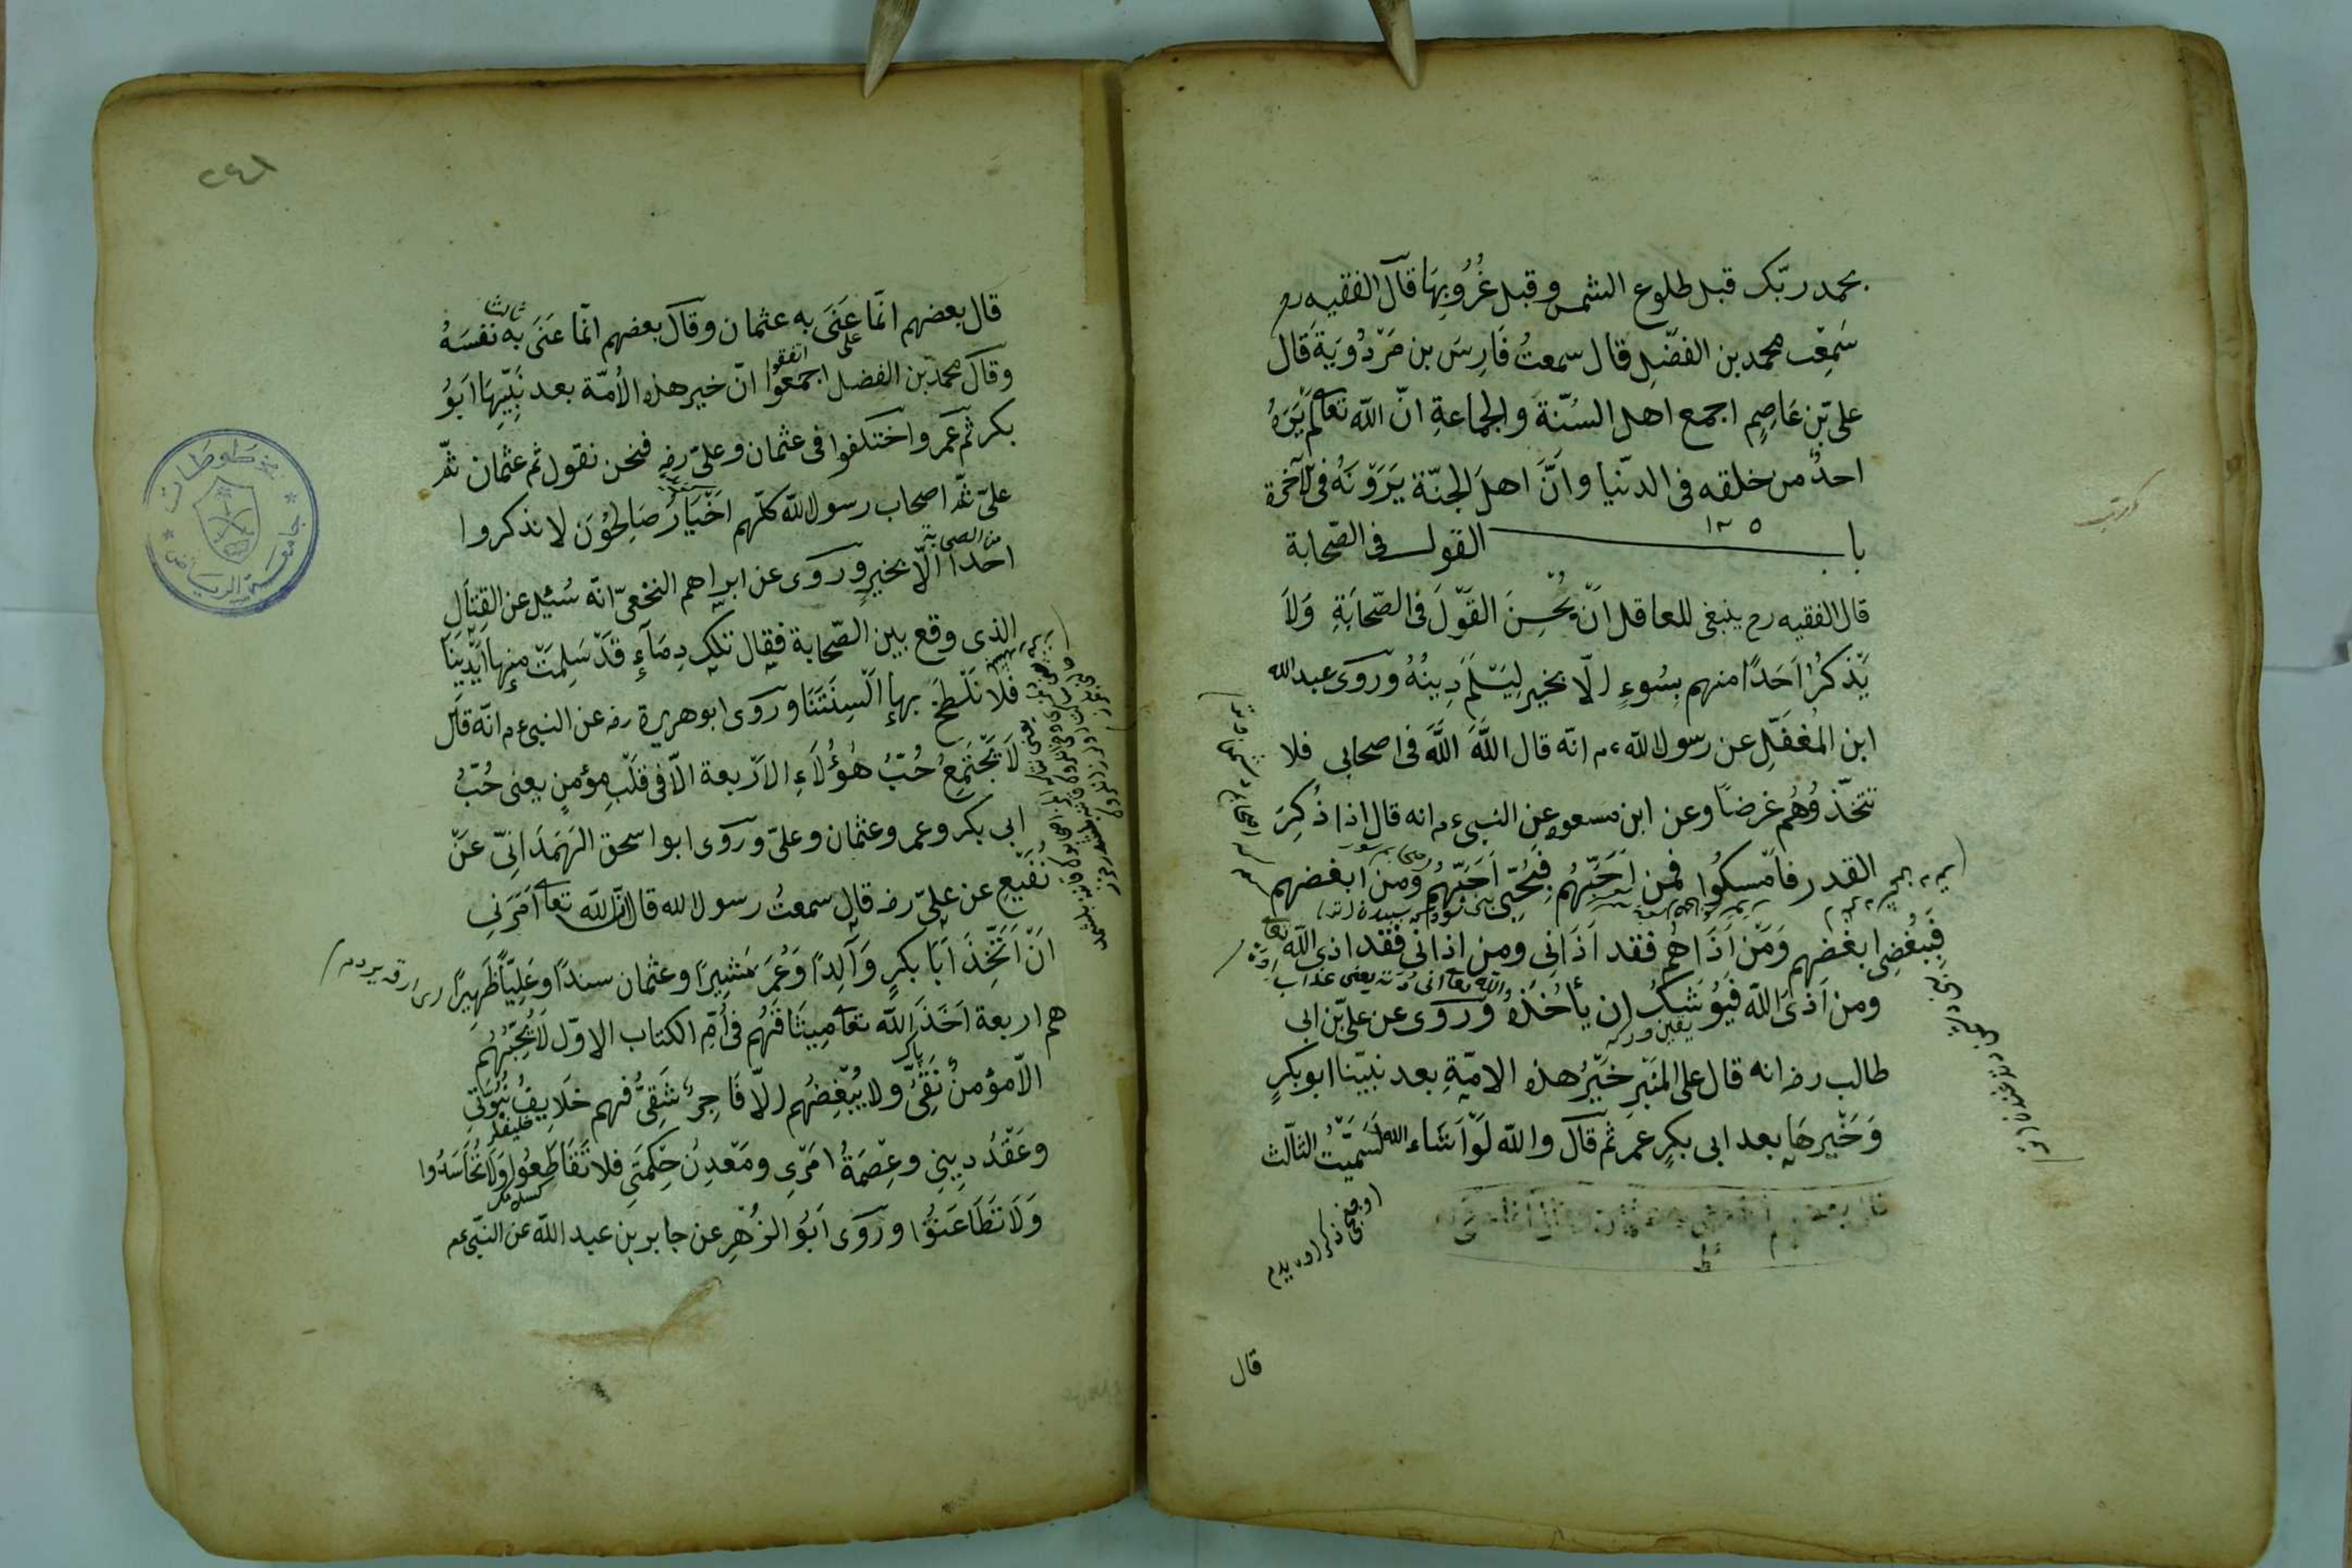 بحمد ربّك قبل طلوع الشمس وقبل غُرُوبِهَا قَالَ الفقيه رح
سَمِعْت محمد بن الفضْلِ قال سمعتُ فَارِسَ بن مَرْدُوَيَة قَال
على بْن عَاصِمٍ اجمع اهل السُنّة والجماعةِ انّ الله تعا لم يَرَهُ
احدٌ من خلقه فى الدّنيا وَاَنَّ اهلَ الجنّة يَرَوْنَهُ فى الآخرة
باب ١٢٥ القول فى الصّحابة
قال الفقيه رح ينبغى للعاقل انْ يُحْسِنَ القَوْلَ فى الصّحابَةِ وَلَا
يَذْكُرُ اَحَدًا منهم بِسُوءٍ الّا بخير لِيَسْلَمَ دِينُهُ وروى عبد الله
ابن المُغَفَّلِ عن رسول الله ءم انّه قال اللهَ اللهَ فى اصحابى فلا
تتخّذُوهُم غرضًا وعن ابن مسعود عن النبى ءم انه قال اذا ذُكِرَ
القدر فامْسكُوا فمن اَحَبَّهُم فَبُحِبّى اَحَبَّهُم وَمن ابغضهم
فَبِبُغْضِى ابغضهم وَمَنْ اَذَاهُم فقد اَذَانِى ومن اذانى فقد اذى الله تعا
ومن اَذىَ الله فَيُوْشَكُ ان يأخُذَهُ وَروَى عن علىّ بْن ابى
طالب رضـ انه قال على المنْبَرِ خَيْرُ هذه الامّةِ بعد نبيّنا ابو بكرٍ
وَخَيْرهَا بعد ابى بكرٍ عمر ثم قَالَ والله لَوْ اَشَاء الله لَسَمَّيْتُ الثالث
قال
٢٤٨
قال بعضهم انّما عَنَى به عثمان وقال بعضهم انّما عَنَى به نفسَهُ
ثالثا
على
اتفقوا
وقال محمّد بن الفضل اجمَعُوا انّ خير هذه الاُمّة بعد نَبِيِّهَا اَبُو
بكر ثم عمر واختلفوا فى عثمان وعلىّ رضـ فنحن نقول ثم عثمان ثمّ
علىّ ثمّ اصحاب رسول الله كلّهم اَخْيَارٌ صَالِحُوْنَ لا نذكروا
من الصحابة
احدًا الّا بخيرٍ وروى عن ابراهم النخعىّ انّه سُئِل عن القِتَالِ
الذى وقع بين الصّحابة فقال تلك دِمَآءٍ قَدْ سَلِمَتْ منها اَيْدِينَا
فلا نَلْطَخُ بها اَلْسِنَتَنَا وروَى ابو هريرة رضـ عن النبى ءم انّه قال
لَا يَجْتَمِعُ حُبُّ هٰؤُلَاءِ الاَرْبعة الّا فى قلْبِ مؤمنٍ يعنى حُبُّ
ابى بكر وعمر وعثمان وعلىّ وروَى ابو اسحق الهَمَدَانِىّ عَنْ
نُفَيْعٍ عن علىّ رضـ قال سمعتُ رسول الله قال انّ الله تعا اَمَرَنِى
انْ اَتَّخِذَ اَبَا بكرٍ وَالِدًا وَعُمَرَ مَشِيرًا وعثمان سندًا وعَلِيّاً ظَهِيرًا
هم اربعة اَخَذَ الله تعا مِيثَاقَهُم فى اُمّ الكتاب الاوّل لَا يُحِبُّهُم
الّا مؤمنٌ تَقِىٌّ ولا يُبْغِضُهُم الّا فَاجِرٌ شَقِىٌّ فهم خَلَايِفُ نُبُوَّتِى
وعَقْدُ دِينِى وعِصْمَةُ اَمْرِى ومَعْدِنُ حِكْمَتِى فلا تَقَاطَعُوا وَلَا تَحَاسَدُوا
وَلَا تَطَاعَنُوْا وروَى اَبُو الزُهْرِ عن جابر بن عبد الله عن النبّى عم
جامعة الرياض
مخطوطات